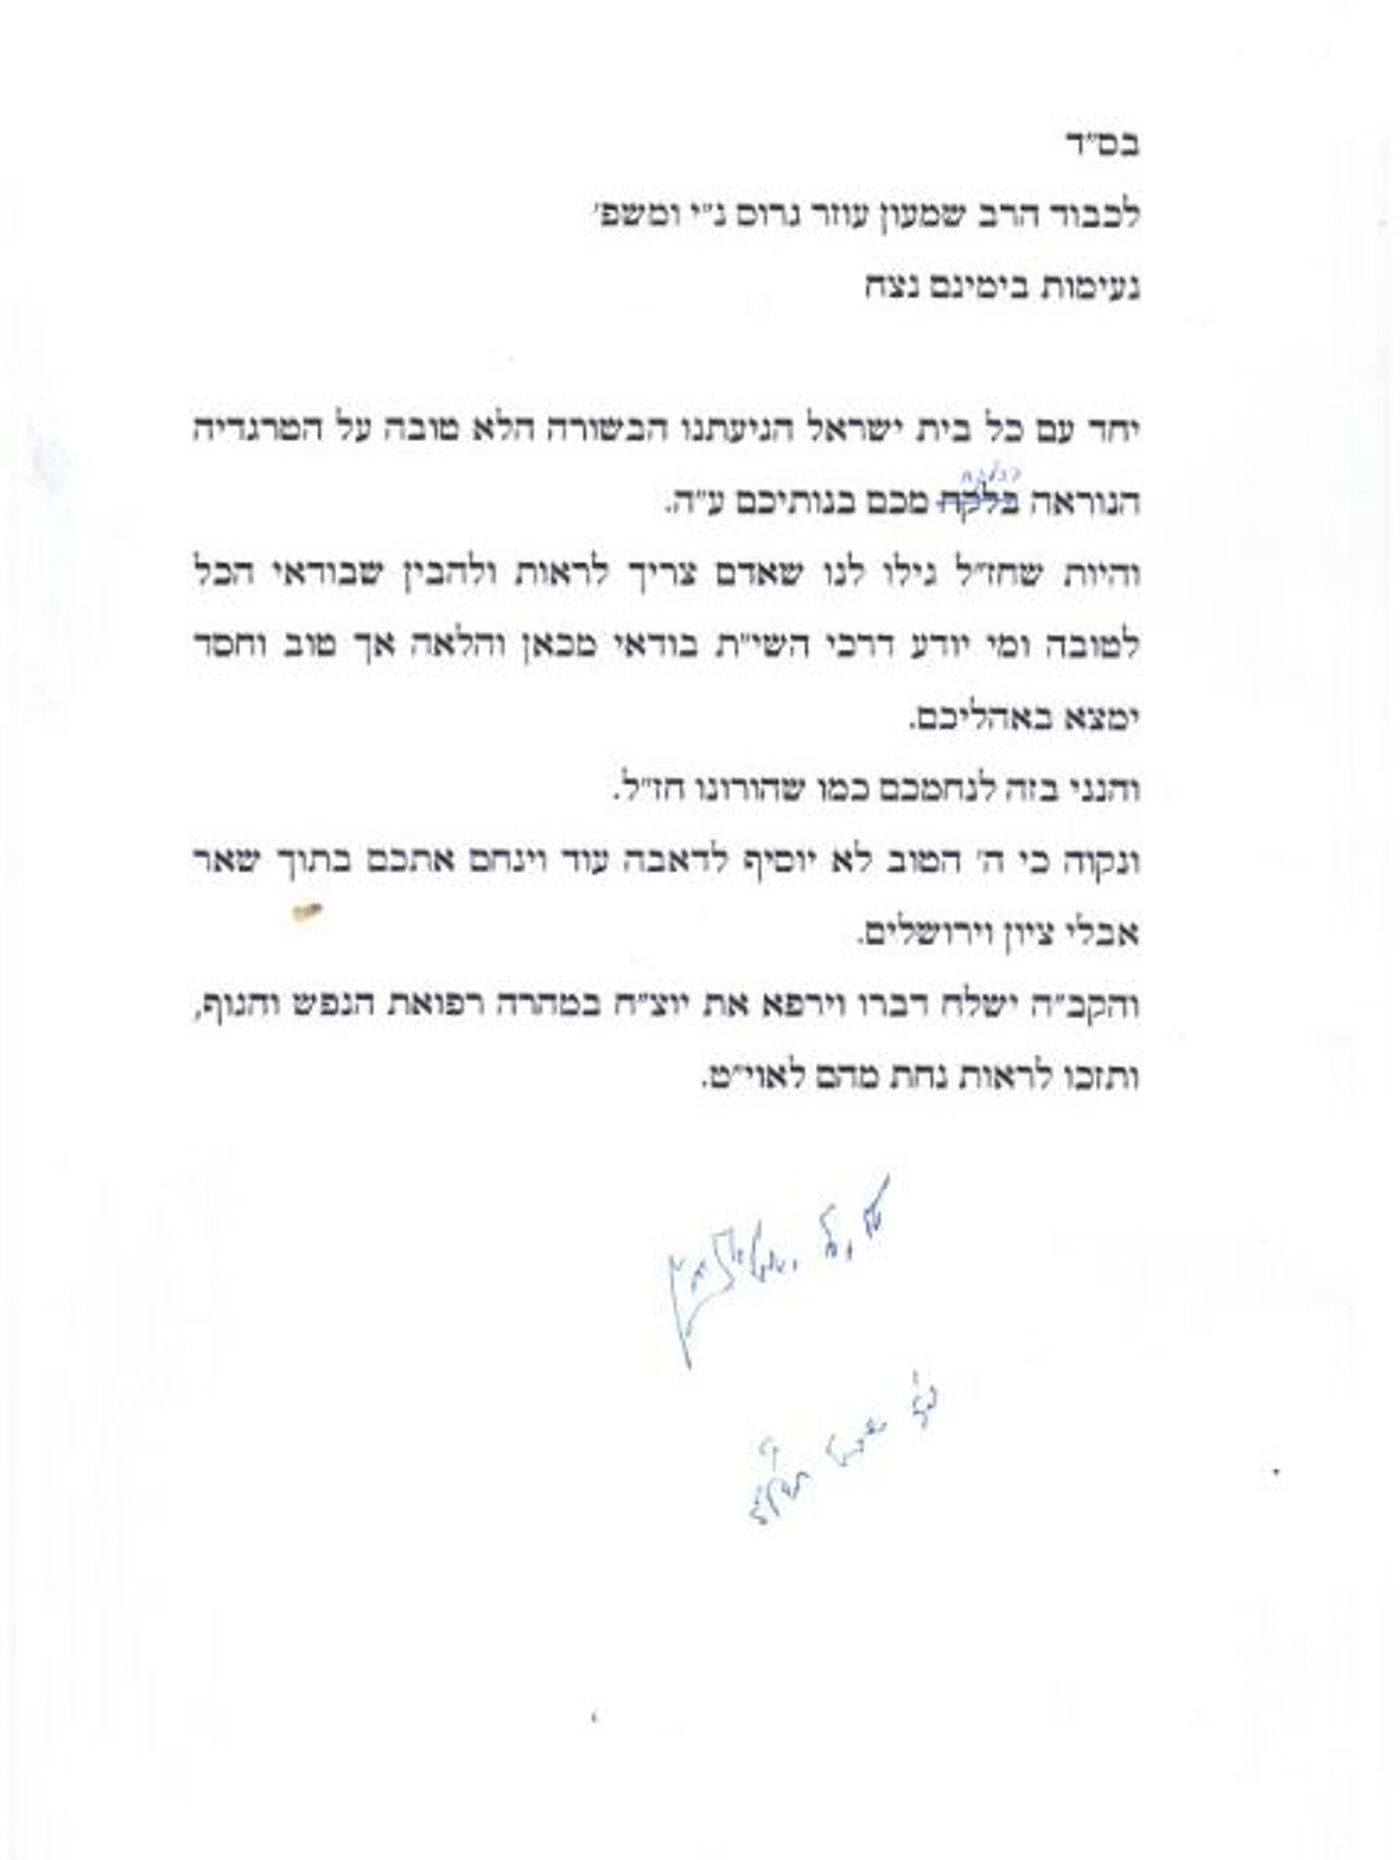 בס"ד
לכבוד הרב שמעון עוזר גרוס נ"י ומשפ'
נעימות בימינם נצח
יחד עם כל בית ישראל הגיעתנו הבשורה הלא טובה על הטרגדיה
הנוראה בלקח מכם בנותיכם ע"ה.
והיות שחז"ל גילו לנו שאדם צריך לראות ולהבין שבודאי הכל
לטובה ומי יודע דרכי השי"ת בודאי מכאן והלאה אך טוב וחסד
ימצא באהליכם.
והנני בזה לנחמכם כמו שהורונו חז"ל.
ונקוה כי ה' הטוב לא יוסיף לדאבה עוד וינחם אתכם בתוך שאר
אבלי ציון וירושלים.
והקב"ה ישלח דברו וירפא את יוצ"ח במהרה רפואת הנפש והגוף,
ותזכו לראות נחת מהם לאוי"ט.